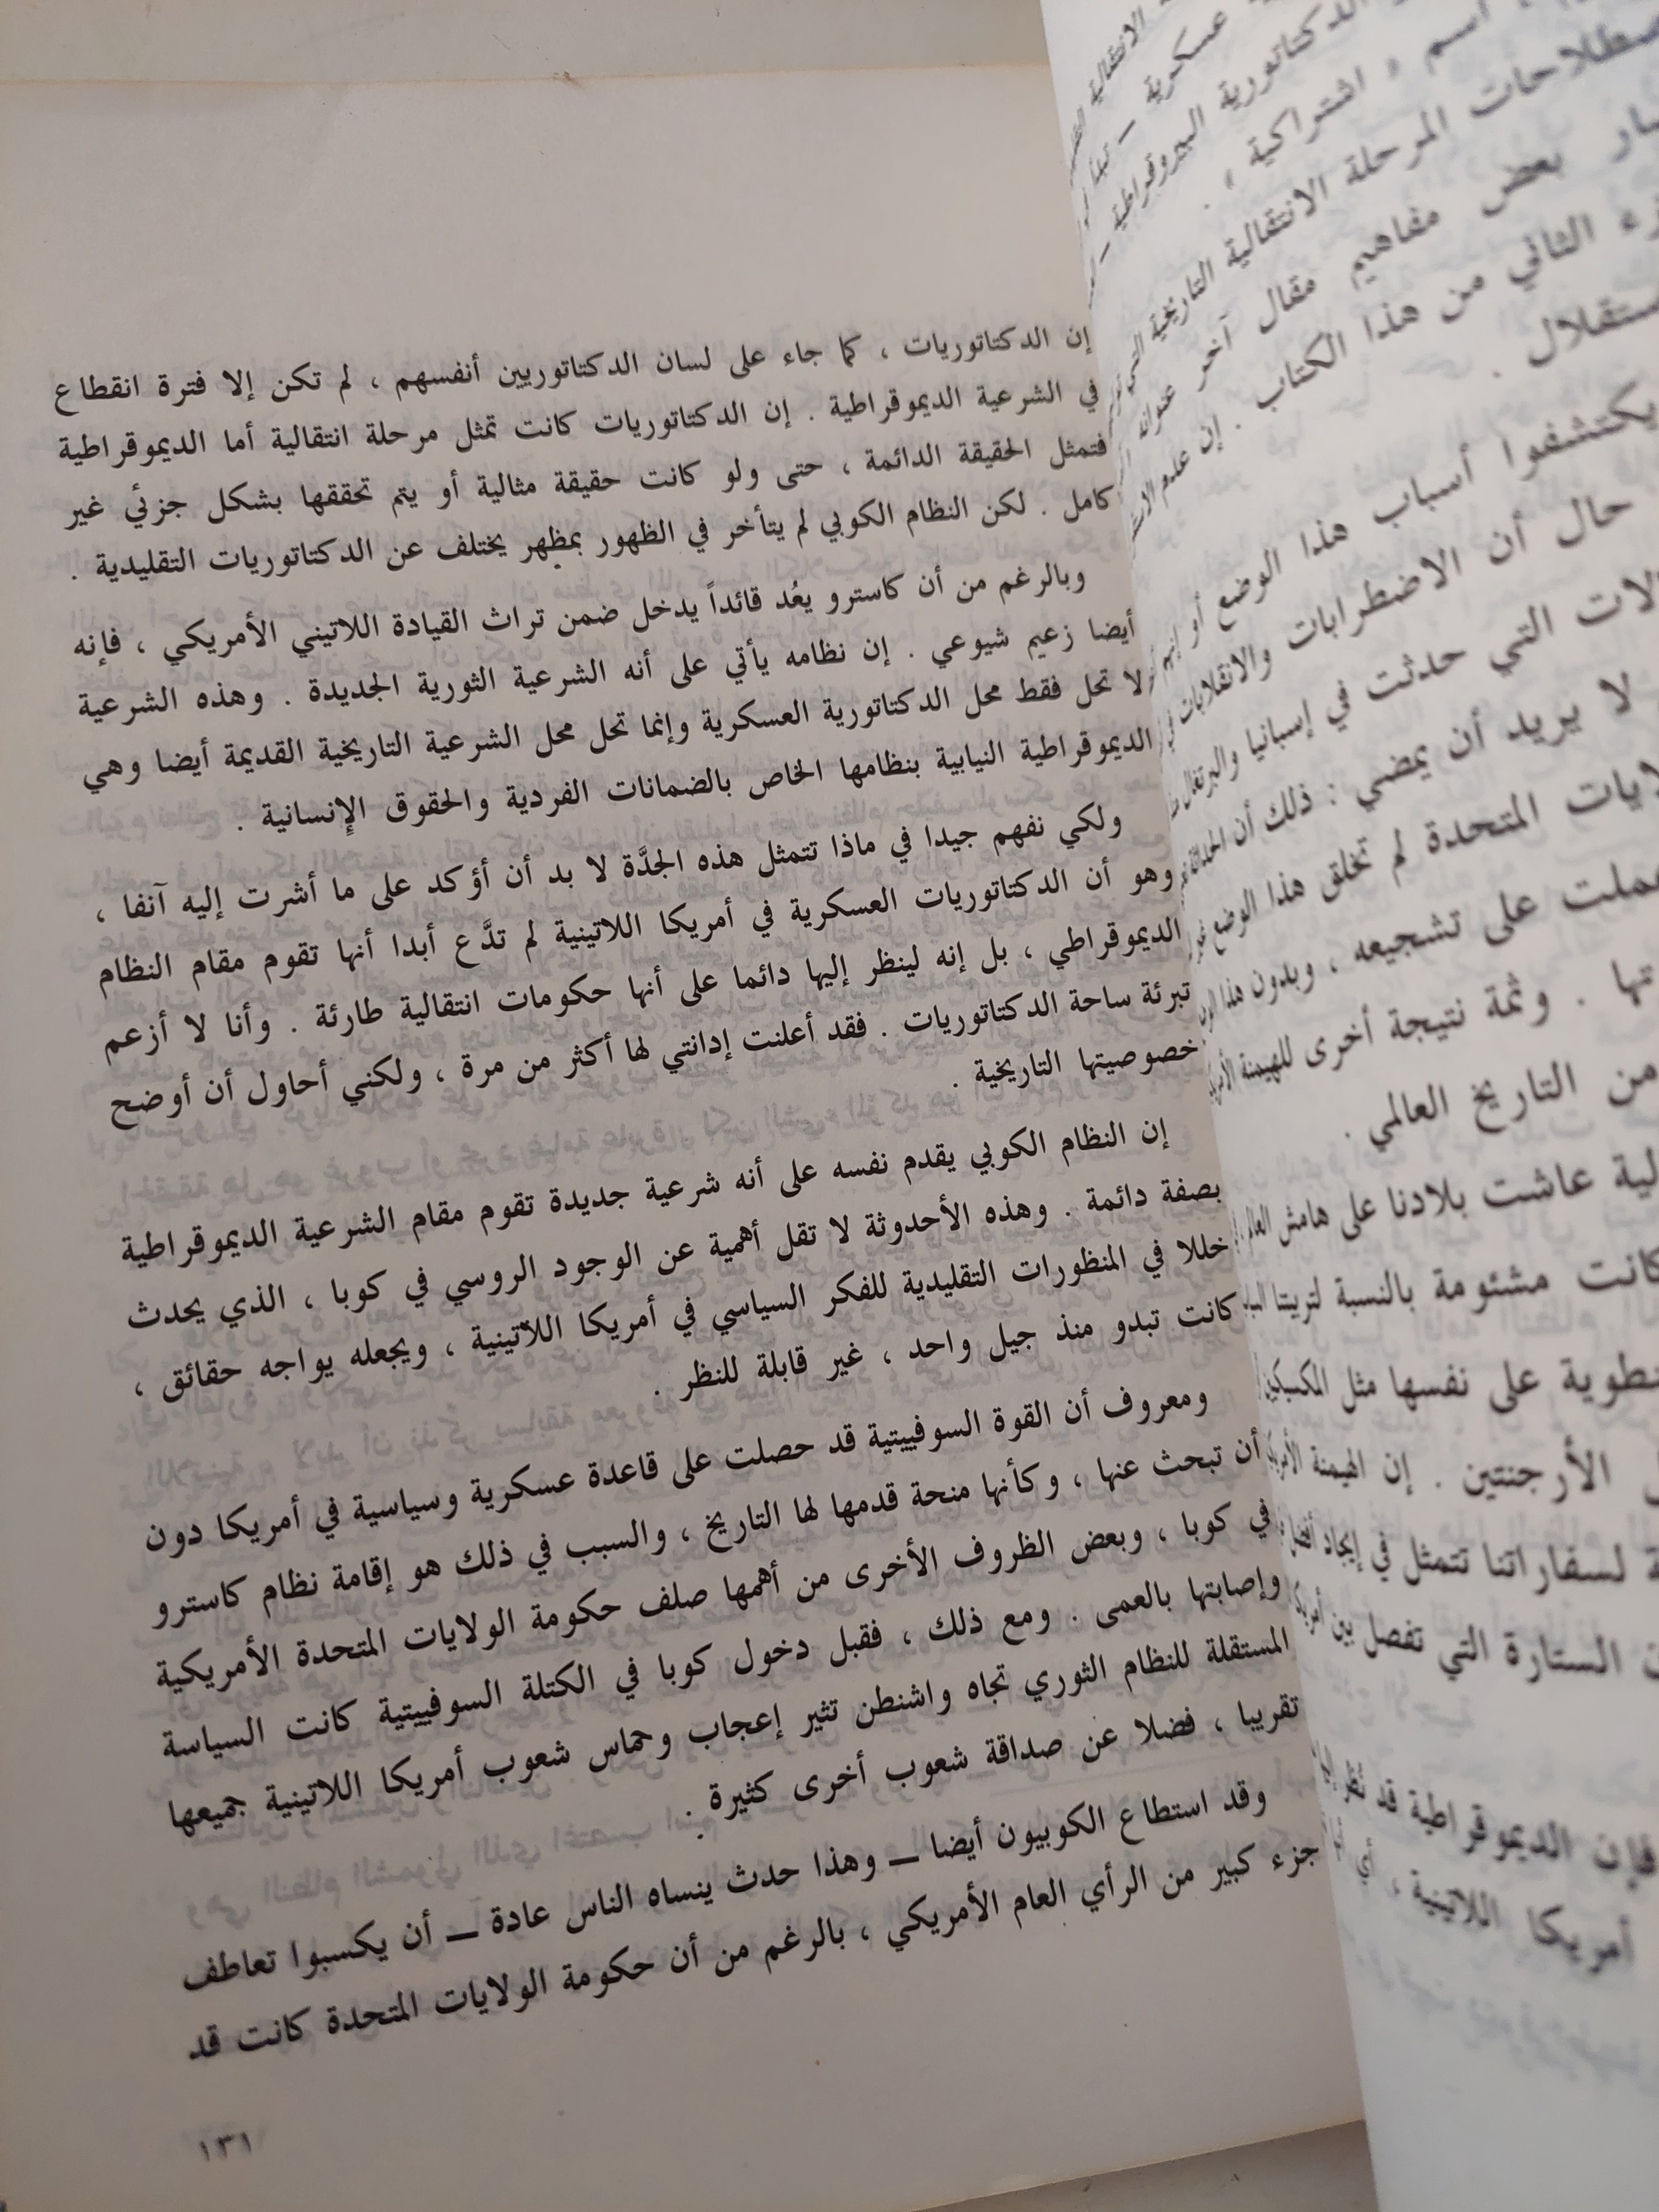 عسكرية
الدكتاتورية البيروقراطية ــ
اسم « اشتراكية » .
المرحلة الانتقالية التاريخية
بعض مفاهيم مقال آخر عنوانه
الثاني من هذا الكتاب . إن علم
يكتشفوا أسباب هذا الوضع أو
حال أن الاضطرابات والانقلابات
التي حدثت في إسبانيا والبرتغال
لا يريد أن يمضي : ذلك أن
المتحدة لم تخلق هذا الوضع
على تشجيعه ، وبدون هذا
. وثمة نتيجة أخرى للهيمنة
من التاريخ العالمي .
عاشت بلادنا على هامش
كانت مشئومة بالنسبة لتربتنا
على نفسها مثل
الأرجنتين . إن الهيمنة
لسفاراتنا تتمثل في إيجاد
الستارة التي تفصل بين
فإن الديموقراطية قد
أمريكا اللاتينية ، أي
إن الدكتاتوريات ، كما جاء على لسان الدكتاتوريين أنفسهم ، لم تكن إلا فترة انقطاع
في الشرعية الديموقراطية . إن الدكتاتوريات كانت تمثل مرحلة انتقالية أما الديموقراطية
فتمثل الحقيقة الدائمة ، حتى ولو كانت حقيقة مثالية أو يتم تحققها بشكل جزئي غير
كامل . لكن النظام الكوبي لم يتأخر في الظهور بمظهر يختلف عن الدكتاتوريات التقليدية .
وبالرغم من أن كاسترو يعُد قائداً يدخل ضمن تراث القيادة اللاتيني الأمريكي ، فإنه
أيضا زعيم شيوعي . إن نظامه يأتي على أنه الشرعية الثورية الجديدة . وهذه الشرعية
لا تحل فقط محل الدكتاتورية العسكرية وإنما تحل محل الشرعية التاريخية القديمة أيضا وهي
الديموقراطية النيابية بنظامها الخاص بالضمانات الفردية والحقوق الإنسانية .
ولكي نفهم جيدا في ماذا تتمثل هذه الجدَّة لا بد أن أؤكد على ما أشرت إليه آنفا ،
وهو أن الدكتاتوريات العسكرية في أمريكا اللاتينية لم تدَّع أبدا أنها تقوم مقام النظام
الديموقراطي ، بل إنه لينظر إليها دائما على أنها حكومات انتقالية طارئة . وأنا لا أزعم
تبرئة ساحة الدكتاتوريات . فقد أعلنت إدانتي لها أكثر من مرة ، ولكني أحاول أن أوضح
خصوصيتها التاريخية .
إن النظام الكوبي يقدم نفسه على أنه شرعية جديدة تقوم مقام الشرعية الديموقراطية
بصفة دائمة . وهذه الأحدوثة لا تقل أهمية عن الوجود الروسي في كوبا ، الذي يحدث
خللا في المنظورات التقليدية للفكر السياسي في أمريكا اللاتينية ، ويجعله يواجه حقائق ،
كانت تبدو منذ جيل واحد ، غير قابلة للنظر .
ومعروف أن القوة السوفييتية قد حصلت على قاعدة عسكرية وسياسية في أمريكا دون
أن تبحث عنها ، وكأنها منحة قدمها لها التاريخ ، والسبب في ذلك هو إقامة نظام كاسترو
في كوبا ، وبعض الظروف الأخرى من أهمها صلف حكومة الولايات المتحدة الأمريكية
وإصابتها بالعمى . ومع ذلك ، فقبل دخول كوبا في الكتلة السوفييتية كانت السياسة
المستقلة للنظام الثوري تجاه واشنطن تثير إعجاب وحماس شعوب أمريكا اللاتينية جميعها
تقريبا ، فضلا عن صداقة شعوب أخرى كثيرة .
وقد استطاع الكوبيون أيضا ــ وهذا حدث ينساه الناس عادة ــ أن يكسبوا تعاطف
جزء كبير من الرأي العام الأمريكي ، بالرغم من أن حكومة الولايات المتحدة كانت قد
١٣١